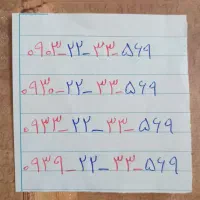 ۰۹۰۳_۲۲_۳۳_۵۶۹
۰۹۳۰_۲۲_۳۳_۵۶۹
۰۹۳۳_۲۲_۳۳_۵۶۹
۰۹۳۹_۲۲_۳۳_۵۶۹